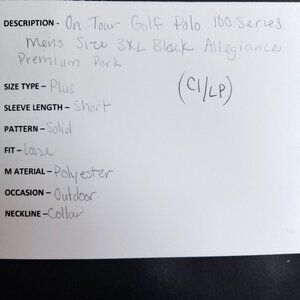 DESCRIPTION - On Tour Golf Polo 100 Series
Mens Size 3XL Black Allegiance
Premium Pork
(CI/LP)
SIZE TYPE - Plus
SLEEVE LENGTH - Short
PATTERN - Solid
FIT - Loose
MATERIAL - Polyester
OCCASION - Outdoor
NECKLINE - Collar